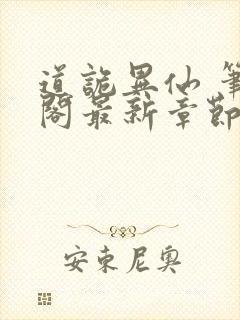 道詭異仙 筆
閣最新章節
安東尼奧